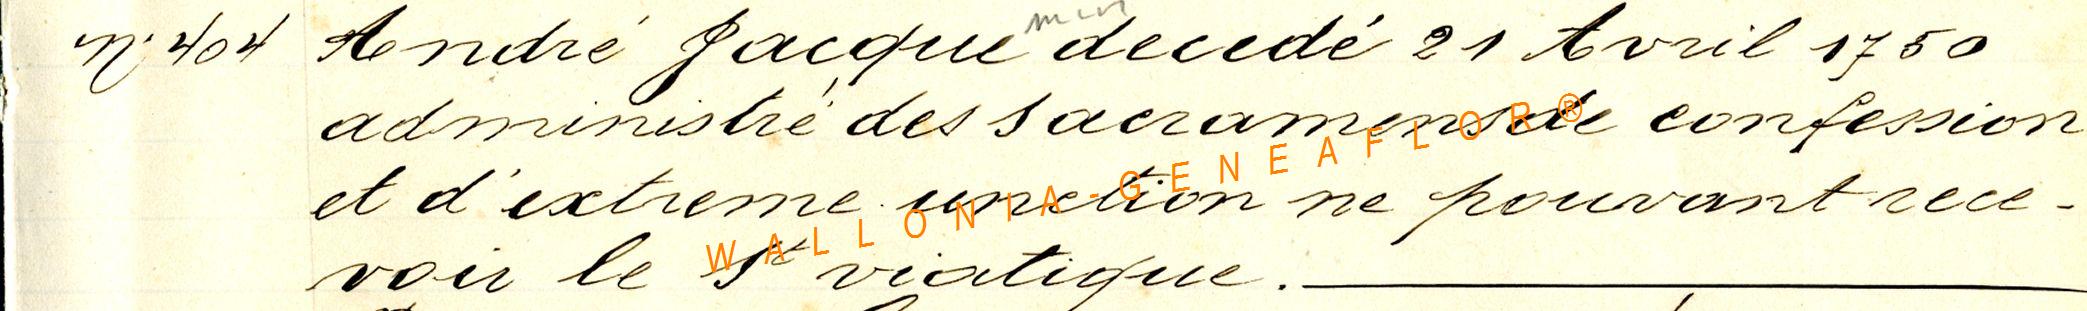 N° 404 André Jacque decedé 21 Avril 1750
administré des sacramens de confession
et d'extreme unction ne pouvant rece-
voir le St viatique.
WALLONIA-GENEAFLOR®